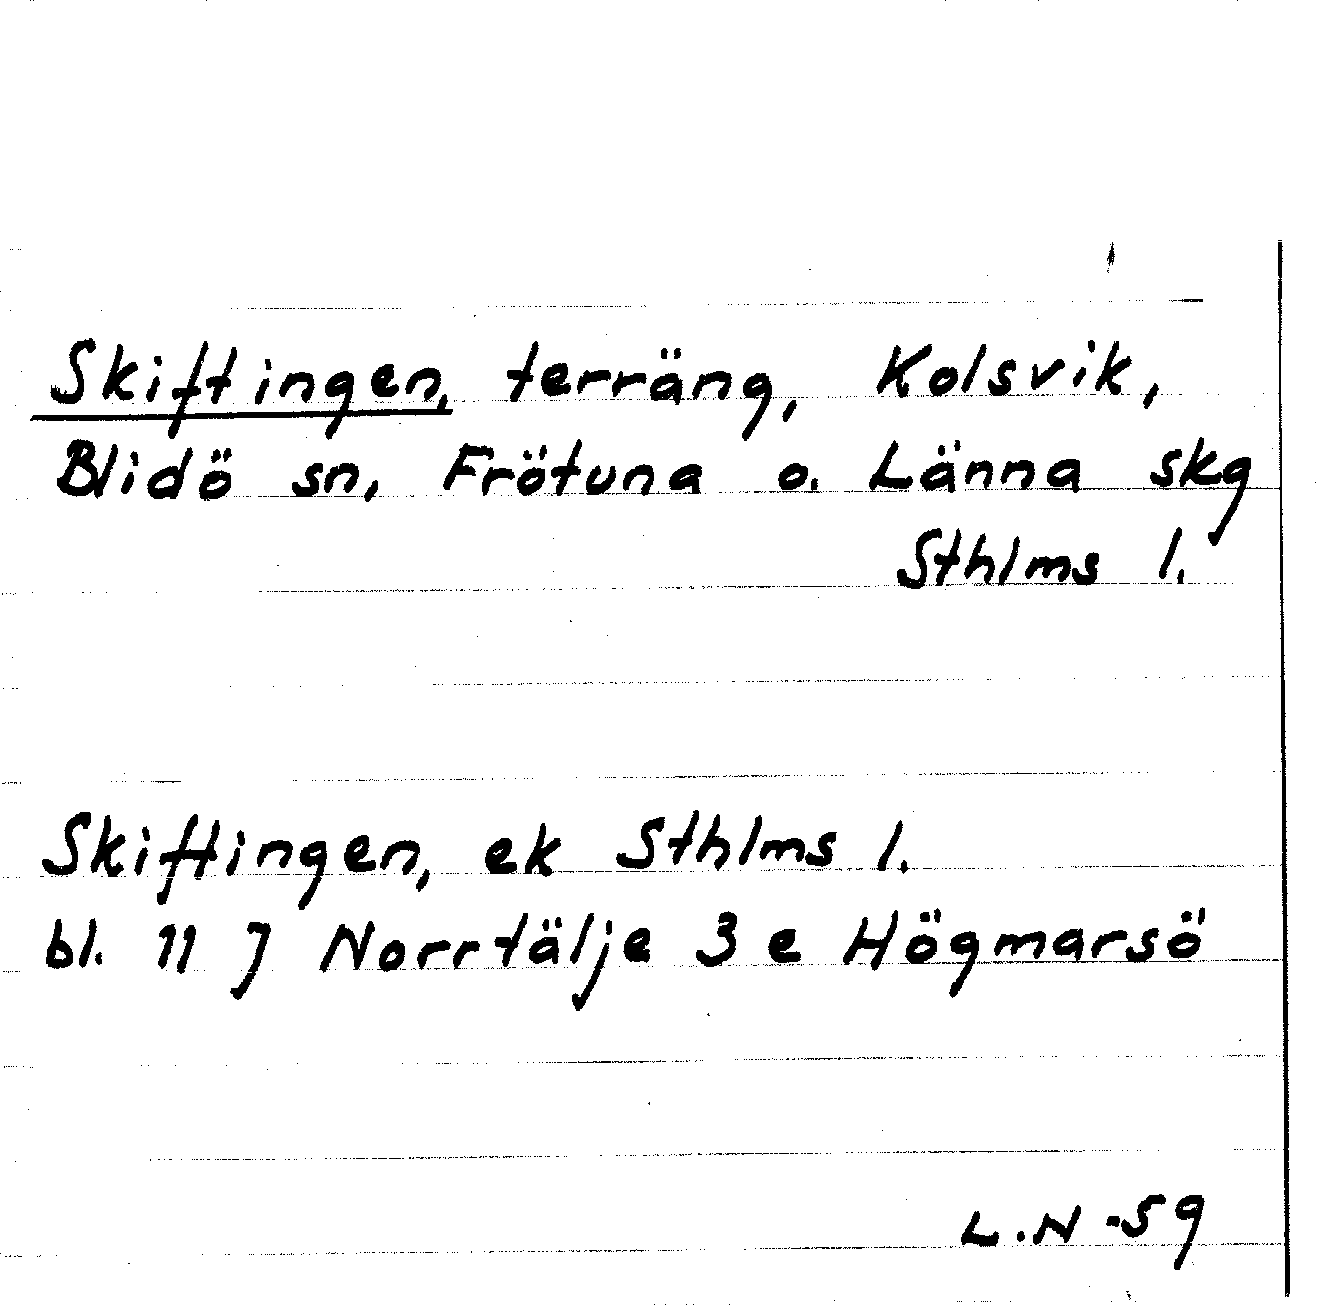 Skiftingen, terräng, Kolsvik,
Blidö sn, Frötuna o. Länna skg
Sthlms l.
Skiftingen, ek Sthlms l.
bl. 11 J Norrtälje 3 e Högmarsö
L.N -59